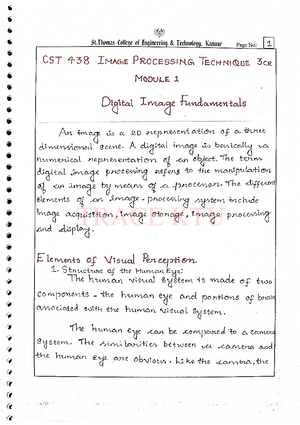 St.Thomas College of Engineering & Technology, Kannur Page No: 1
CST 438 IMAGE PROCESSING TECHNIQUE 3CR
MODULE 1
Digital Image Fundamentals
An image is a 2D representation of a three
dimensional scene. A digital image is basically a
numerical representation of an object. The term
digital image processing refers to the manipulation
of an image by means of a processor. The different
elements of an image-processing system include
image acquisition, image storage, image processing
and display.
TRACE KTU
Elements of Visual Perception.
1. Structure of the Human Eye:
The human visual system is made of two
components - the human eye and portions of brain
associated with the human visual system.
The human eye can be compared to a camera
system. The similarities between a camera and
the human eye are obvious. Like the camera, the